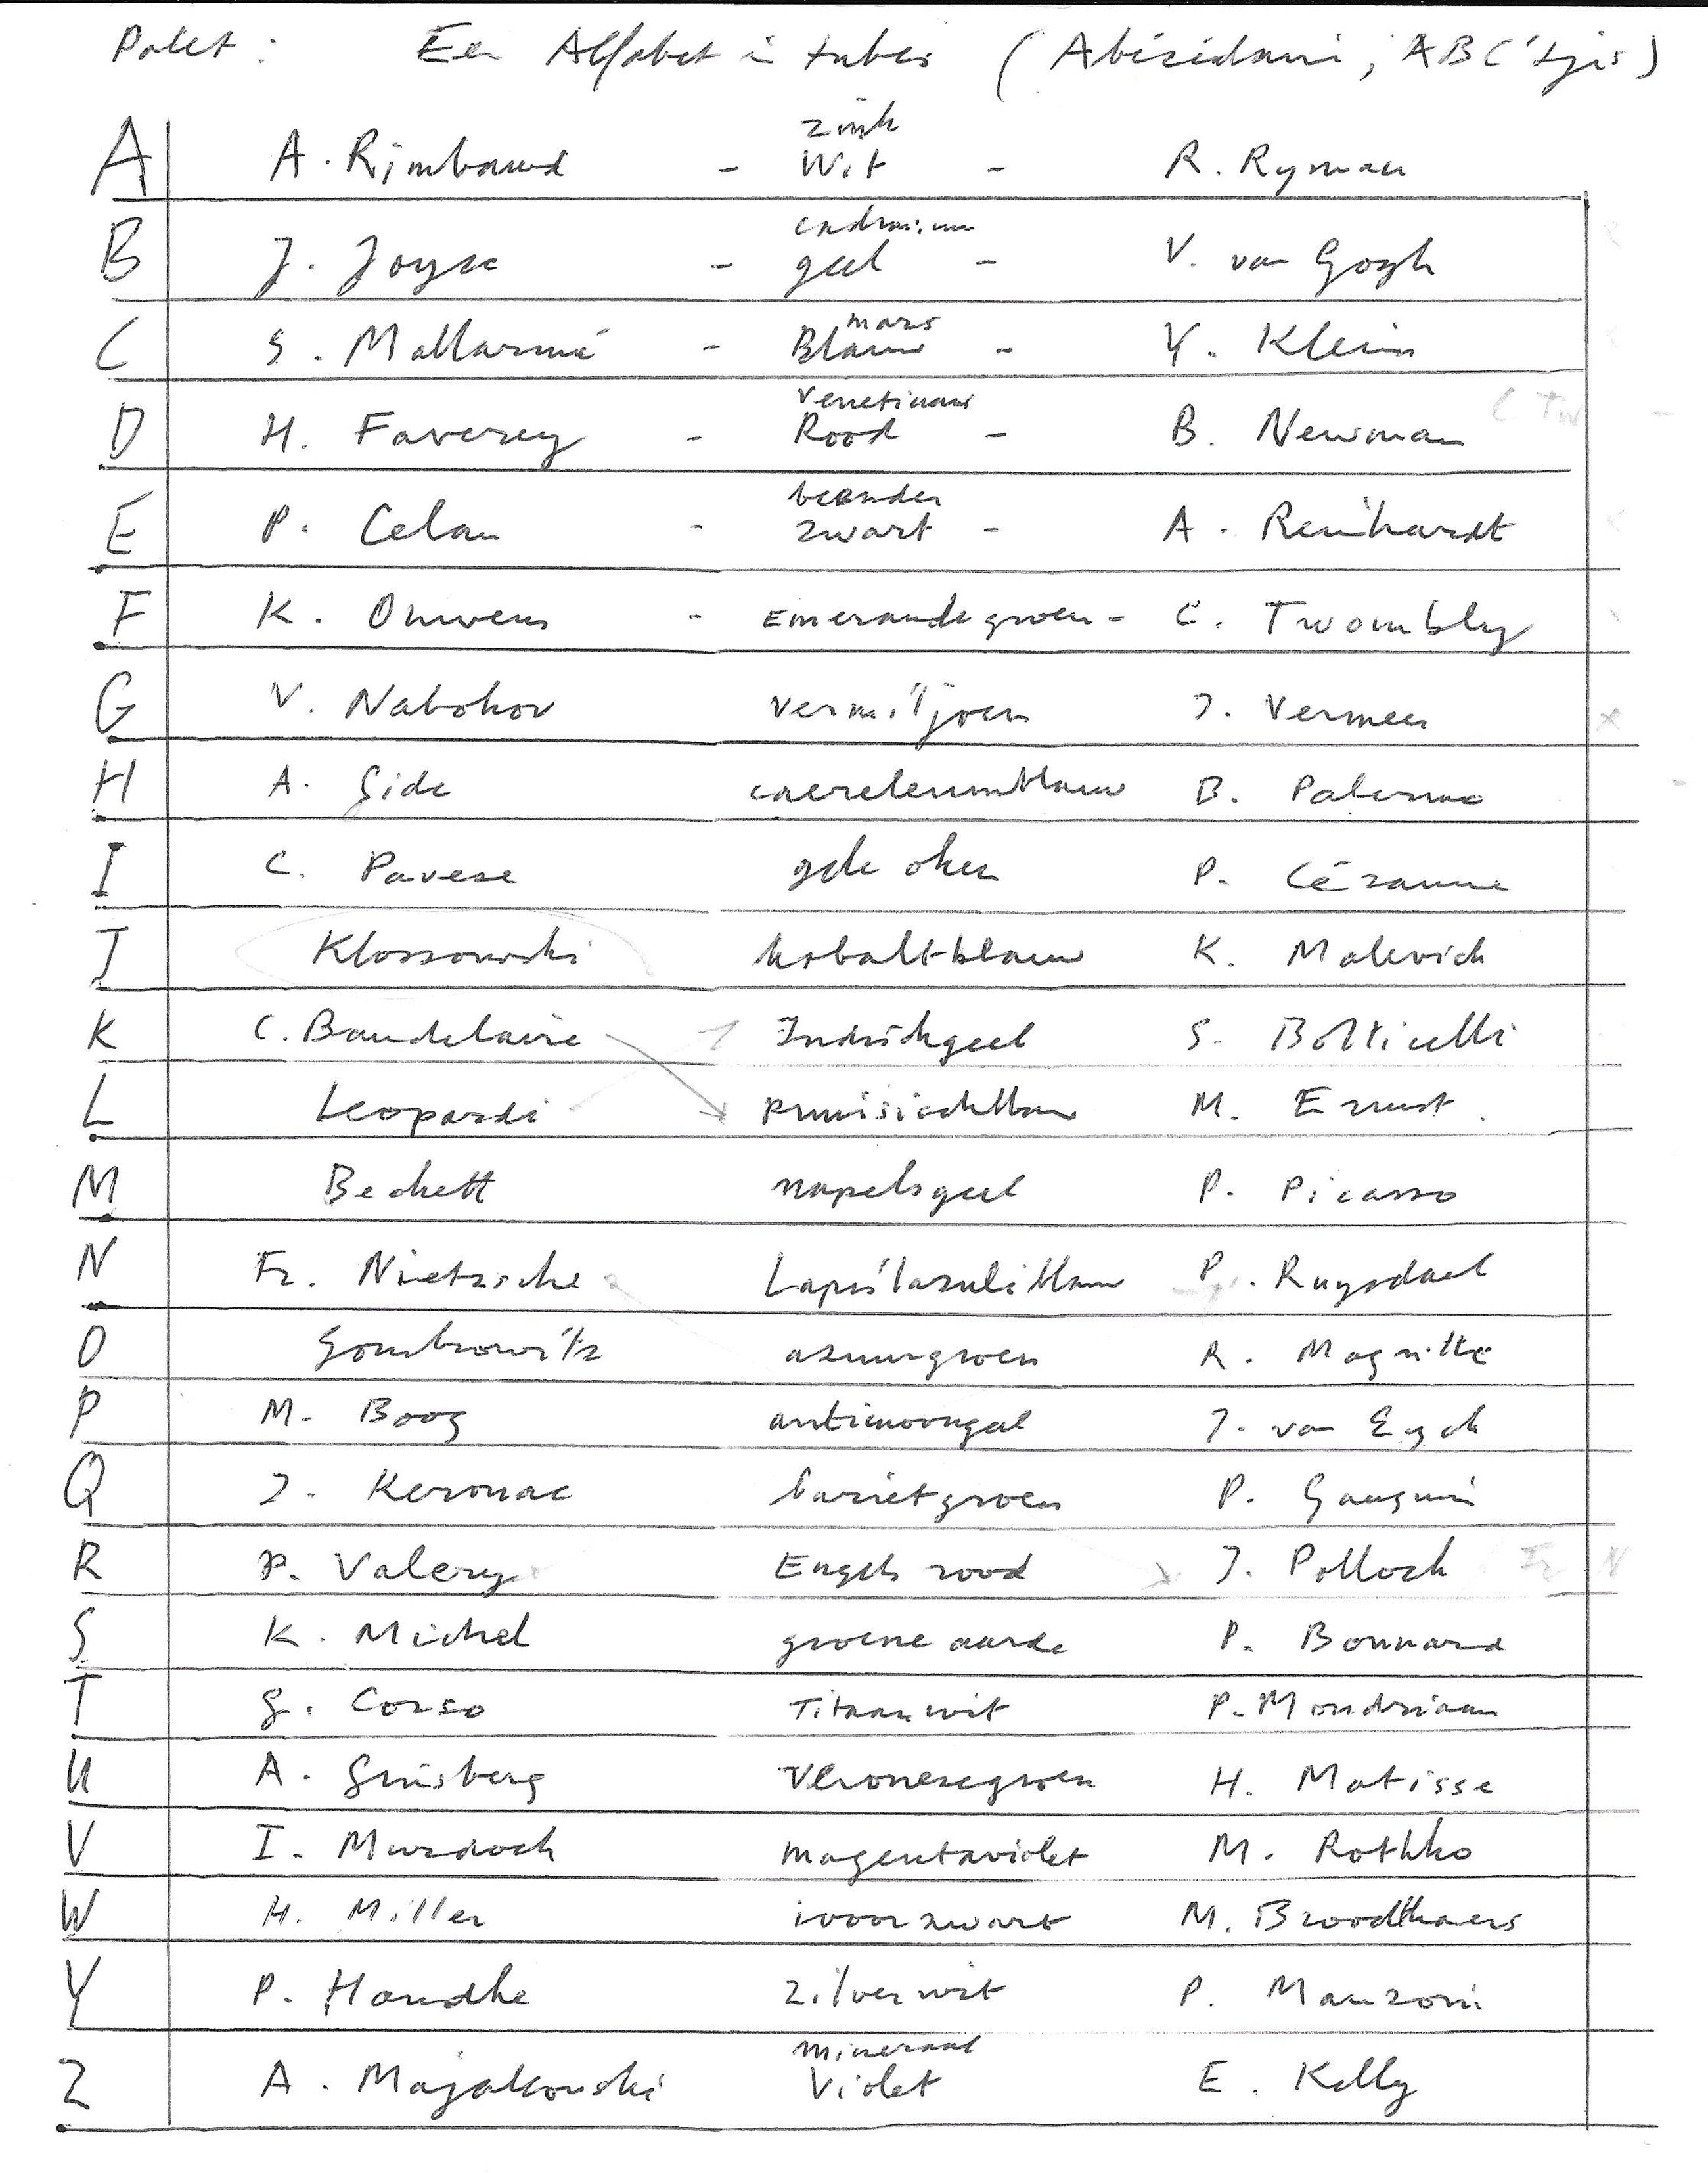 Palet : Een Alfabet in tubes (Abécédaire, ABC'tjes)
A A. Rimbaud - zink Wit - R. Ryman
B J. Joyce - cadmium geel - V. van Gogh
C S. Mallarmé - mars Blauw - Y. Klein
D H. Faverey - Venetiaans Rood - B. Newman
E P. Celan - beender zwart - A. Reinhardt
F K. Ouwens - Emeraudegroen - C. Twombly
G V. Nabokov vermiljoen J. Vermeer
H A. Gide caereleumblauw B. Palermo
I C. Pavese gele oker P. Cézanne
J Klossowski kobaltblauw K. Malevich
K C. Baudelaire Indischgeel S. Botticelli
L Leopardi pruisischblauw M. Ernst
M Beckett napelsgeel P. Picasso
N Fr. Nietzsche Lapislazuliblauw P. Ruysdael
O Gombrowitz azuurgroen R. Magritte
P M. Boog antimoongeel J. van Eyck
Q J. Kerouac barietgroen P. Gauguin
R P. Valery Engels rood J. Pollock
S K. Michel groene aarde P. Bonnard
T G. Corso Titaanwit P. Mondriaan
U A. Ginsberg Veronesegroen H. Matisse
V I. Murdoch magentaviolet M. Rothko
W H. Miller ivoorzwart M. Broodthaers
Y P. Handke zilverwit P. Manzoni
Z A. Majakowski mineraal Violet E. Kelly